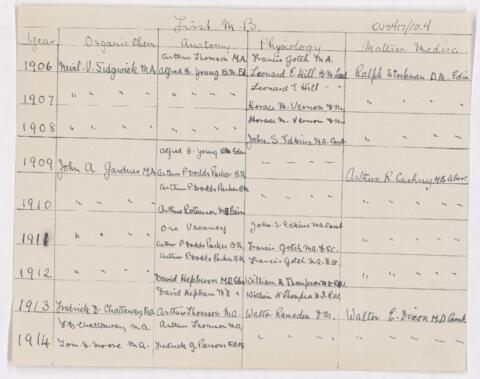 First M.B. CUS4/7/10.4
Year Organic Chem Anatomy Physiology Materia Medica
Arthur Thomson M.A. Francis Gotch M.A.
1906 Nevil V. Sidgwick M.A. Alfred H. Young B.M. Leonard E Hill B.M. Ralph Stockman D.M. Edin
" " " " Leonard E Hill " " " " "
1907 " " " " Horace M. Vernon D.M. " " "
Horace M. Vernon D.M.
1908 " " " " " " "
John S Edkins M.A. Cant
Alfred H. Young
1909 John A Gardner M.A. Arthur P. Dodds Parker B.M. Arthur R. Cushny M.D. Aber
Arthur P Dodds Parker B.M.
1910 " " " " " "
Arthur Robinson M.D. Edin
One Vacancy John S. Edkins M.A. Cant
1911 " " " Arthur P. Dodds Parker B.M. Francis Gotch M.A. D.Sc. " " "
Arthur P. Dodds Parker B.M. Francis Gotch M.A. D.Sc.
1912 " " " " " "
David Hepburn M.D. William H Thompson M.D.
David Hepburn M.D. William H Thompson M.D.
1913 Fredrick D. Chattaway M.A. Arthur Thomson M.A. Walter Ramsden D.M. Walter E. Dixon M.D. Camb.
F.D. Chattaway M.A. Arthur Thomson M.A. " " " " "
1914 Tom S. Moore M.A. Fredrick G Parsons